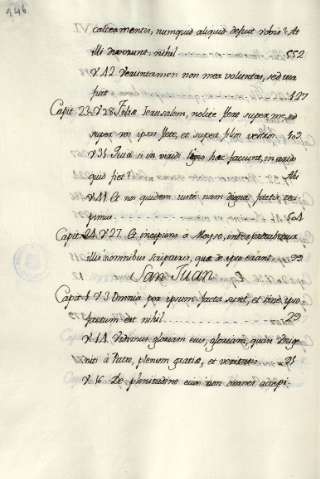 946
calceamentis, numquid aliquid defuit vobis? At
illi dixerunt: nihil 552
V 42 Veruntamen non mea voluntas, sed tua
fiat 127
Capit. 23 V 28 Filiæ Jerusalem, nolite flere super me, sed
super vos ipsas flete, et super filios vestros
V 31 Quia si in viridi ligno hæc faciunt, in arido
quid fiet?
V 41 Et nos quidem iuste nam digna factis reci
pimus 504
Capit. 24 V 27 Et incipiens a Moyse, interpretabatur
illis in omnibus scripturis, quæ de ipso erant 99
San Juan
Capit. 1 V 3 Omnia per ipsum facta sunt, et sine ipso
factum est nihil 29
V 14 Vidimus gloriam eius, gloriam, quasi Unige
niti à Patre, plenum gratiæ, et veritatis
V 16 De plenitudine eius nos omnes accepi